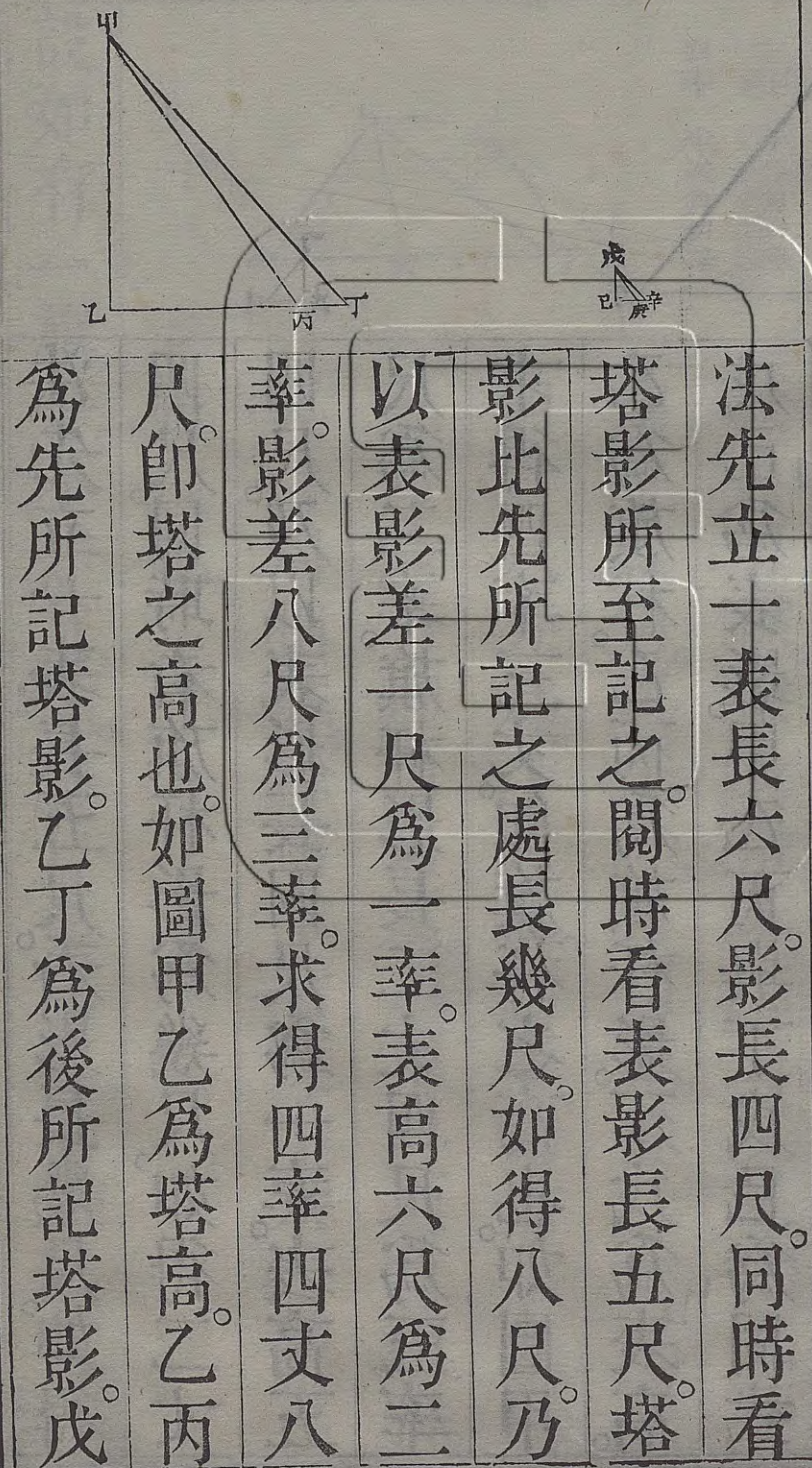 法先立一表長六尺。影長四尺。同時看
塔影所至記之。閱時看表影長五尺。塔
影比先所記之處長幾尺。如得八尺。乃
以表影差一尺爲一率。表高六尺爲二
率。影差八尺爲三率。求得四率四丈八
尺。卽塔之高也。如圖甲乙爲塔高。乙丙
爲先所記塔影。乙丁爲後所記塔影。戊
甲
乙
丙
丁
戊
己
庚
辛